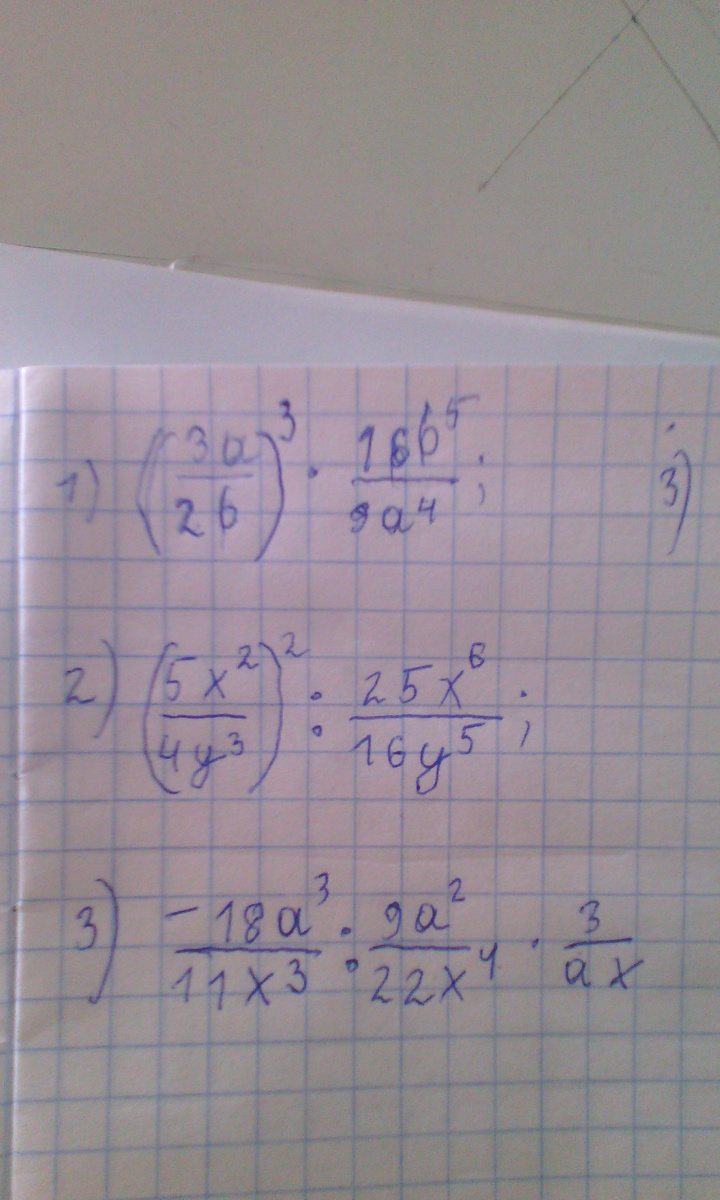 1) (3a/2b)³ · 16b⁵/9a⁴ ; 3)
2) (5x²/4y³)² : 25x⁶/16y⁵ ;
3) -18a³/11x³ : 9a²/22x⁴ · 3/ax